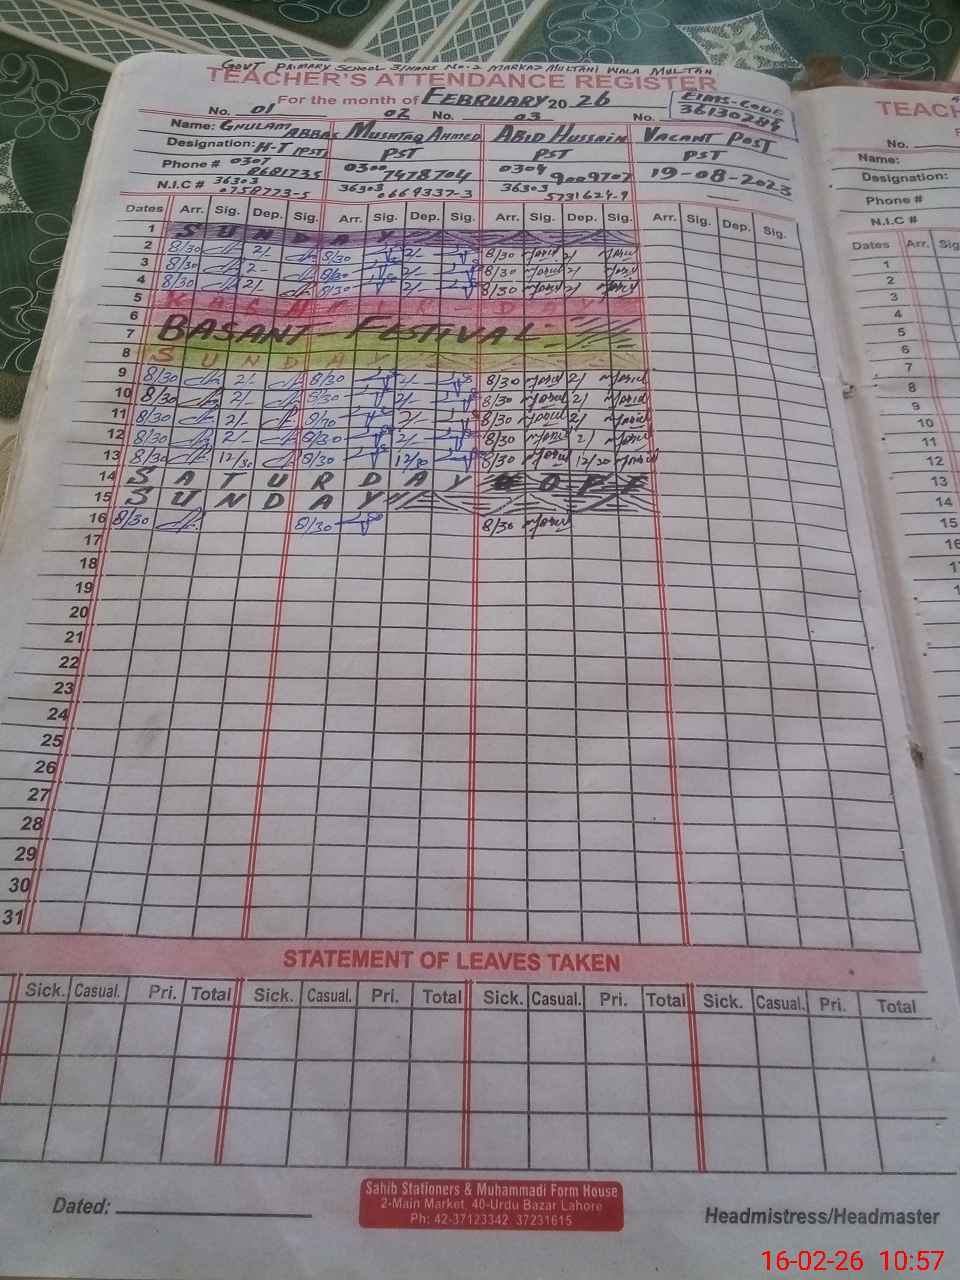 GOVT PRIMARY SCHOOL No.2 MARKAZ MULTANI WALA MULTAN
TEACHER'S ATTENDANCE REGISTER
For the month of FEBRUARY 2026
EIMS-CODE
No. 01 02 No. 03 No.
Name: GHULAM ABBAS MUSHTAQ AHMED ABID HUSSAIN VACANT POST
Designation: H-T (PST) PST PST PST
Phone # 0307 8681735 0300 7478704 0304 9009707 19-08-2023
N.I.C # 36303 0758773-5 36303 0669337-3 36303 5731624-9
Dates Arr. Sig. Dep. Sig. Arr. Sig. Dep. Sig. Arr. Sig. Dep. Sig. Arr. Sig. Dep. Sig.
1 SUNDAY
2 8/30 2/- 8/30 2/- 8/30 2/
3 8/30 2- 8/30 2/- 8/30 2/
4 8/30 2/- 8/30 2/- 8/30 2/
5 KASHMIR-DAY
6
7 BASANT FESTIVAL
8 SUNDAY
9 8/30 2/- 8/30 2/- 8/30 2/
10 8/30 2/- 8/30 2/- 8/30 2/
11 8/30 2/- 8/30 2/- 8/30 2/
12 8/30 2/- 8/30 2/- 8/30 2/
13 8/30 12/30 8/30 12/30 8/30 12/30
14 SATURDAY
15 SUNDAY
16 8/30 8/30 8/30
17
18
19
20
21
22
23
24
25
26
27
28
29
30
31
STATEMENT OF LEAVES TAKEN
Sick. Casual. Pri. Total Sick. Casual. Pri. Total Sick. Casual. Pri. Total Sick. Casual. Pri. Total
Dated:
Sahib Stationers & Muhammadi Form House
2-Main Market 40-Urdu Bazar Lahore
Ph: 42-37123342 37231615
Headmistress/Headmaster
TEACH
No.
Name:
Designation:
Phone #
N.I.C #
Dates Arr. Sig.
1
2
3
4
5
6
7
8
9
10
11
12
13
14
15
16
16-02-26 10:57